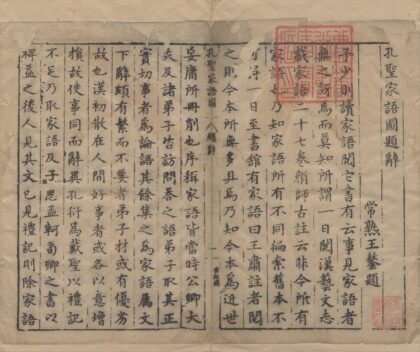 孔聖家語圖題辭
常熟王鏊題
予少則讀家語閱它書有云事見家語者
無之訝焉而莫知所謂一日閱漢藝文志
載家語二十七卷顏師古註云非今所有
家語也乃知家語所有不同徧索舊本不
可得一日至書館有家語曰王肅註者閱
之則今本所無多具焉乃知今本爲近世
孔聖家語圖
題辭
妄庸所刪削也序稱家語皆當時公卿大
夫及諸弟子皆訪問答之語弟子取其正
實切事者爲論語其餘集之爲家語屬文
下辭頗有繁而不要者弟子材或有優劣
故也漢初散在人間好事者或各以意增
損故使事同而辭異孔衍爲戴聖以禮記
不足乃取家語及子思孟軻荀卿之書以
裨益之後人見其文已見禮記則除家語